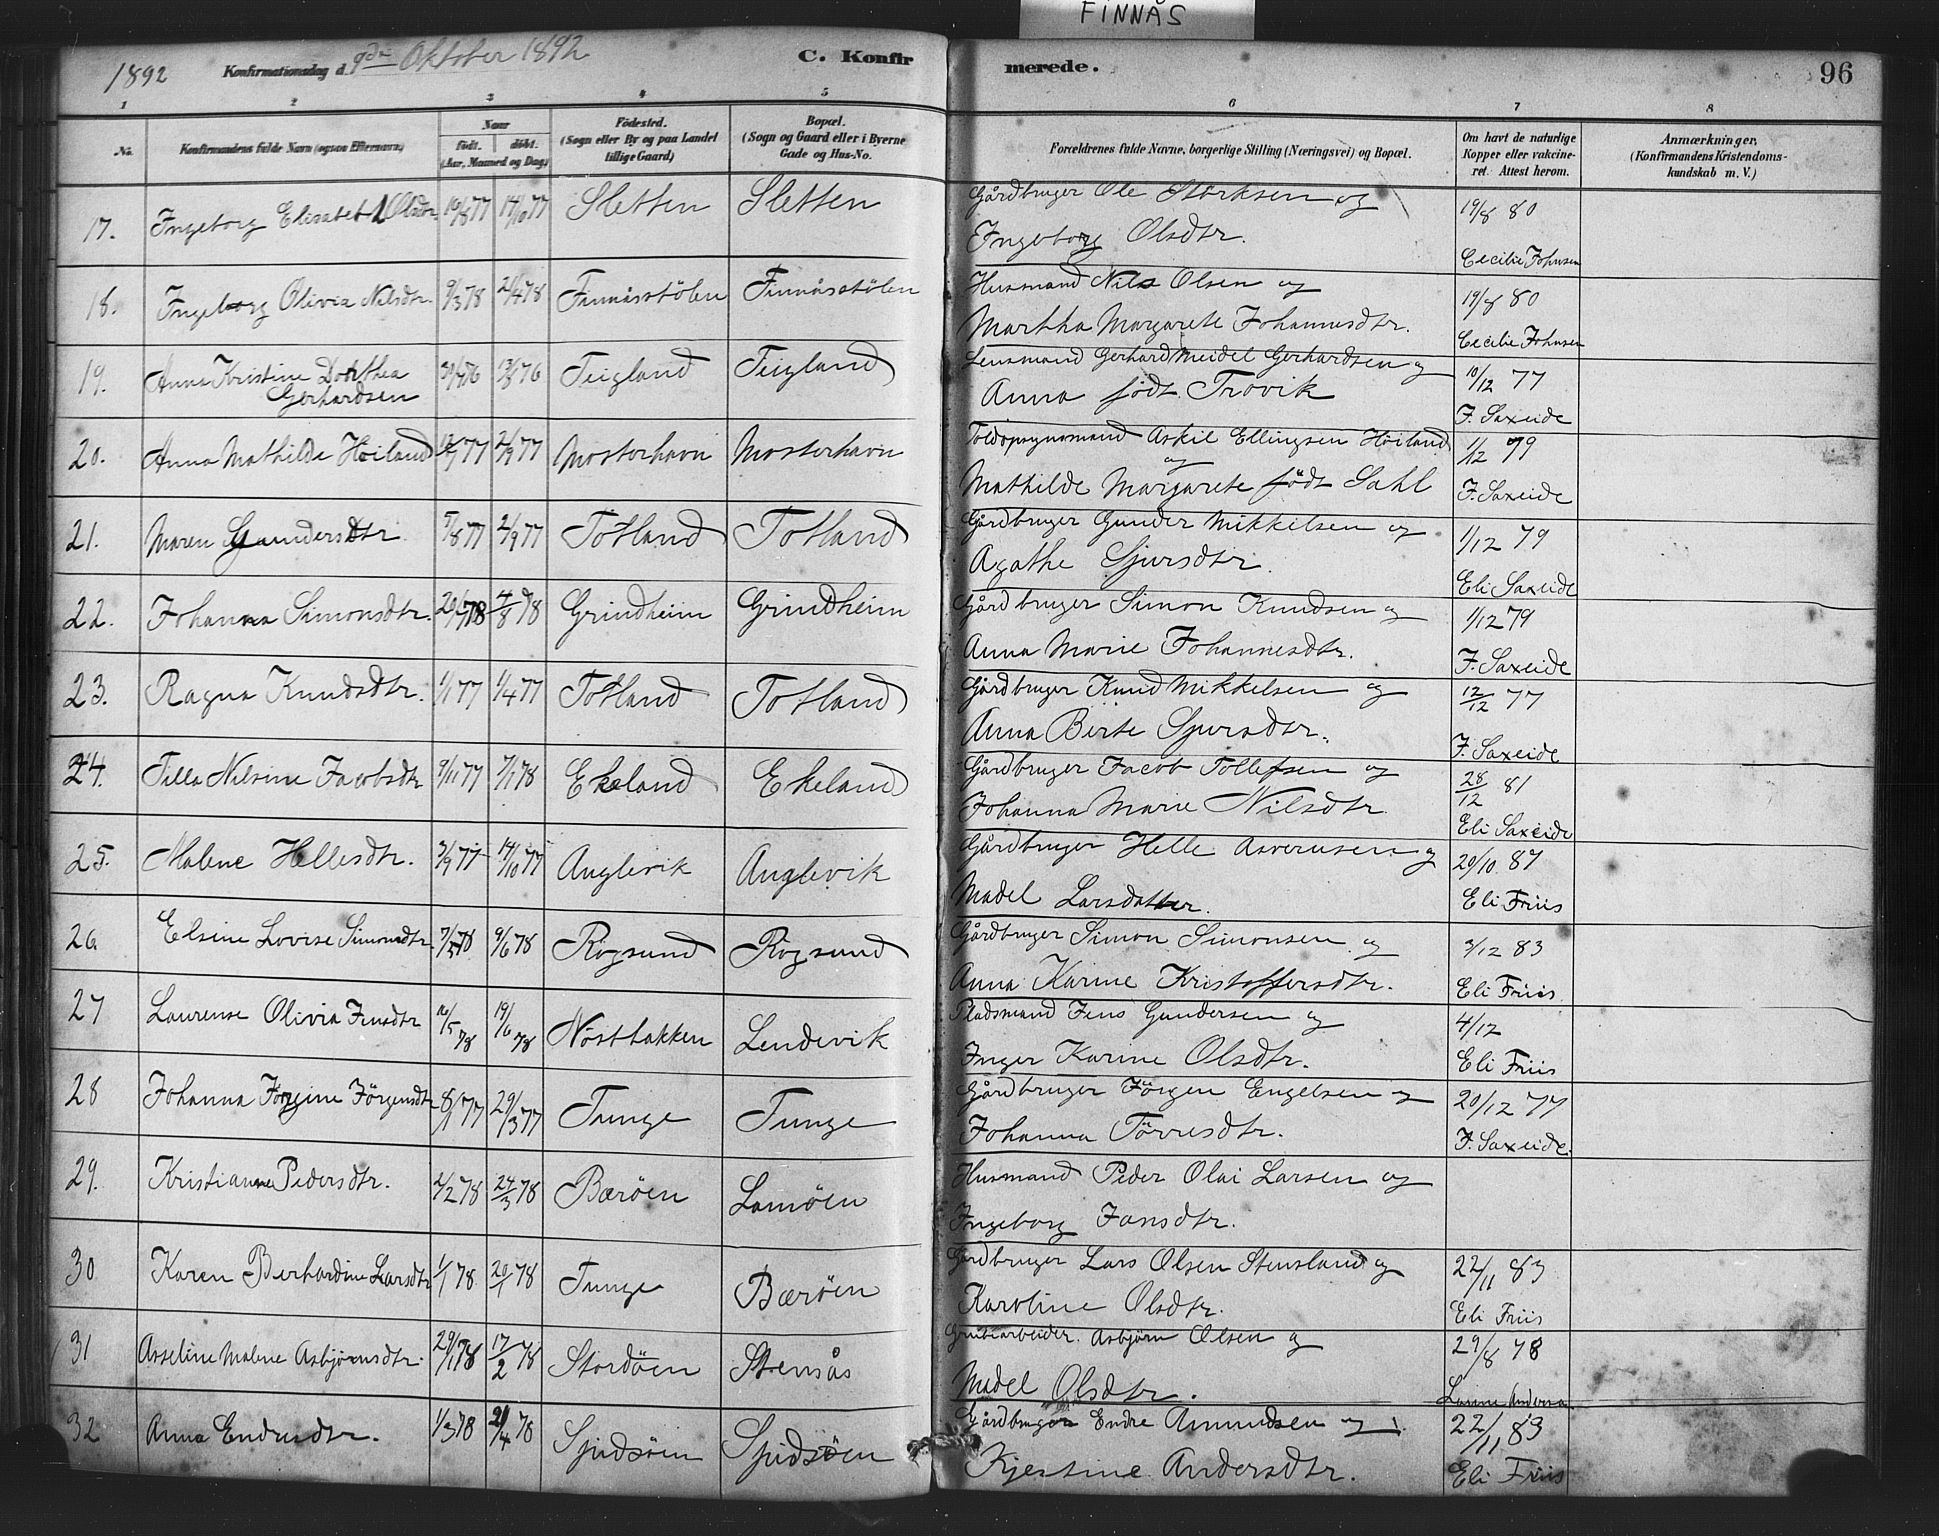 FINNÅS
1892 Konfirmationsdag d. 9de Oktober 1892 C. Konfirmerede. 96
1 2 3 4 5 6 7 8
No. Konfirmandens fulde Navn (ogsaa Efternavn) Naar født. døbt. (Aar, Maaned og Dag) Fødested. (Sogn eller By og paa Landet tillige Gaard) Bopæl. (Sogn og Gaard eller i Byerne Gade og Hus-No. Forældrenes fulde Navne, borgerlige Stilling (Næringsvei) og Bopæl. Om havt de naturlige Kopper eller vakcineret. Attest herom. Anmærkninger. (Konfirmandens Kristendomskundskab m. V.)
17. Ingeborg Elisabet Olsdtr. 10/8 77 14/10 77 Sletten Sletten Gårdbruger Ole Størksen og 19/8 80
Ingeborg Olsdtr. Cecilie Johnsen
18. Ingeborg Olivia Nilsdtr. 9/3 78 21/4 78 Finnåsstølen Finnåsstølen Husmand Nils Olsen og 19/8 80
Martha Margarete Johannesdtr. Cecilie Johnsen
19. Anna Kristine Dorthea Gerhardsen 76 76 Teigland Teigland Lensmand Gerhard Meidel Gerhardsen og 10/12 77
Anna født Trovik F. Saxeide
20. Anna Mathilde Höiland 77 2/9 77 Mosterhavn Mosterhavn Toldopsynsmand Askil Ellingsen Höiland og 1/12 79
Mathilde Margarete født Sahl F. Saxeide
21. Maren Gundersdtr 5/8 77 2/9 77 Totland Totland Gårdbruger Gunder Mikkelsen og 1/12 79
Agathe Sjursdtr. Eli Saxeide
22. Johanna Simonsdtr. 78 4/8 78 Grindheim Grindheim Gårdbruger Simon Knudsen og 1/12 79
Anna Marie Johannesdtr. F. Saxeide
23. Ragna Knudsdtr. 1/1 77 1/4 77 Totland Totland Gårdbruger Knud Mikkelsen og 12/12 77
Anna Birte Sjursdtr. F. Saxeide
24. Tilla Nilsine Jacobsdtr 9/11 77 7/1 78 Ekeland Ekeland Gårdbruger Jacob Tollefsen og 28/12 81
Johanna Marie Nilsdtr Eli Saxeide
25. Malene Hellesdtr. 3/9 77 14/10 77 Anglevik Anglevik Gårdbruger Helle Asverusen og 20/10 87
Madel Larsdatter. Eli Friis
26 Elsine Lovise Simonsdtr 78 9/6 78 Rögsund Rögsund Gårdbruger Simon Simonsen og 3/12 83
Anna Karine Kristoffersdtr. Eli Friis
27 Laurense Olivia Jensdtr 16/5 78 19/6 78 Nöstbakken Lendevik Pladsmand Jens Gundersen og 4/12
Inger Karine Olsdtr. Eli Friis
28 Johanna Jörgine Jörgensdtr 8/1 77 29/3 77 Tunge Tunge Gårdbruger Jörgen Engelsen og 20/12 77
Johanna Törresdtr. F. Saxeide.
29. Kristianne Pedersdtr. 2/2 78 24/3 78 Bæröen Lamöen Husmand Peder Olai Larsen og
Ingeborg Jansdtr.
30 Karen Berhardine Larsdtr 1/1 78 20/1 78 Tunge Bæröen Gårdbruger Lars Olsen Stensland og 22/11 83
Karoline Olsdtr. Eli Friis
31 Asseline Malene Asbjørnsdtr. 29/1 78 17/2 78 Stordöen Stensås Grubearbeider. Asbjørn Olsen og 29/8 78
Madel Olsdtr.
32 Anna Endresdtr. 1/3 78 21/4 78 Spidsöen Spidsöen Gårdbruger Endre Amundsen og 22/11 83
Kjestine Andersdtr. Eli Friis